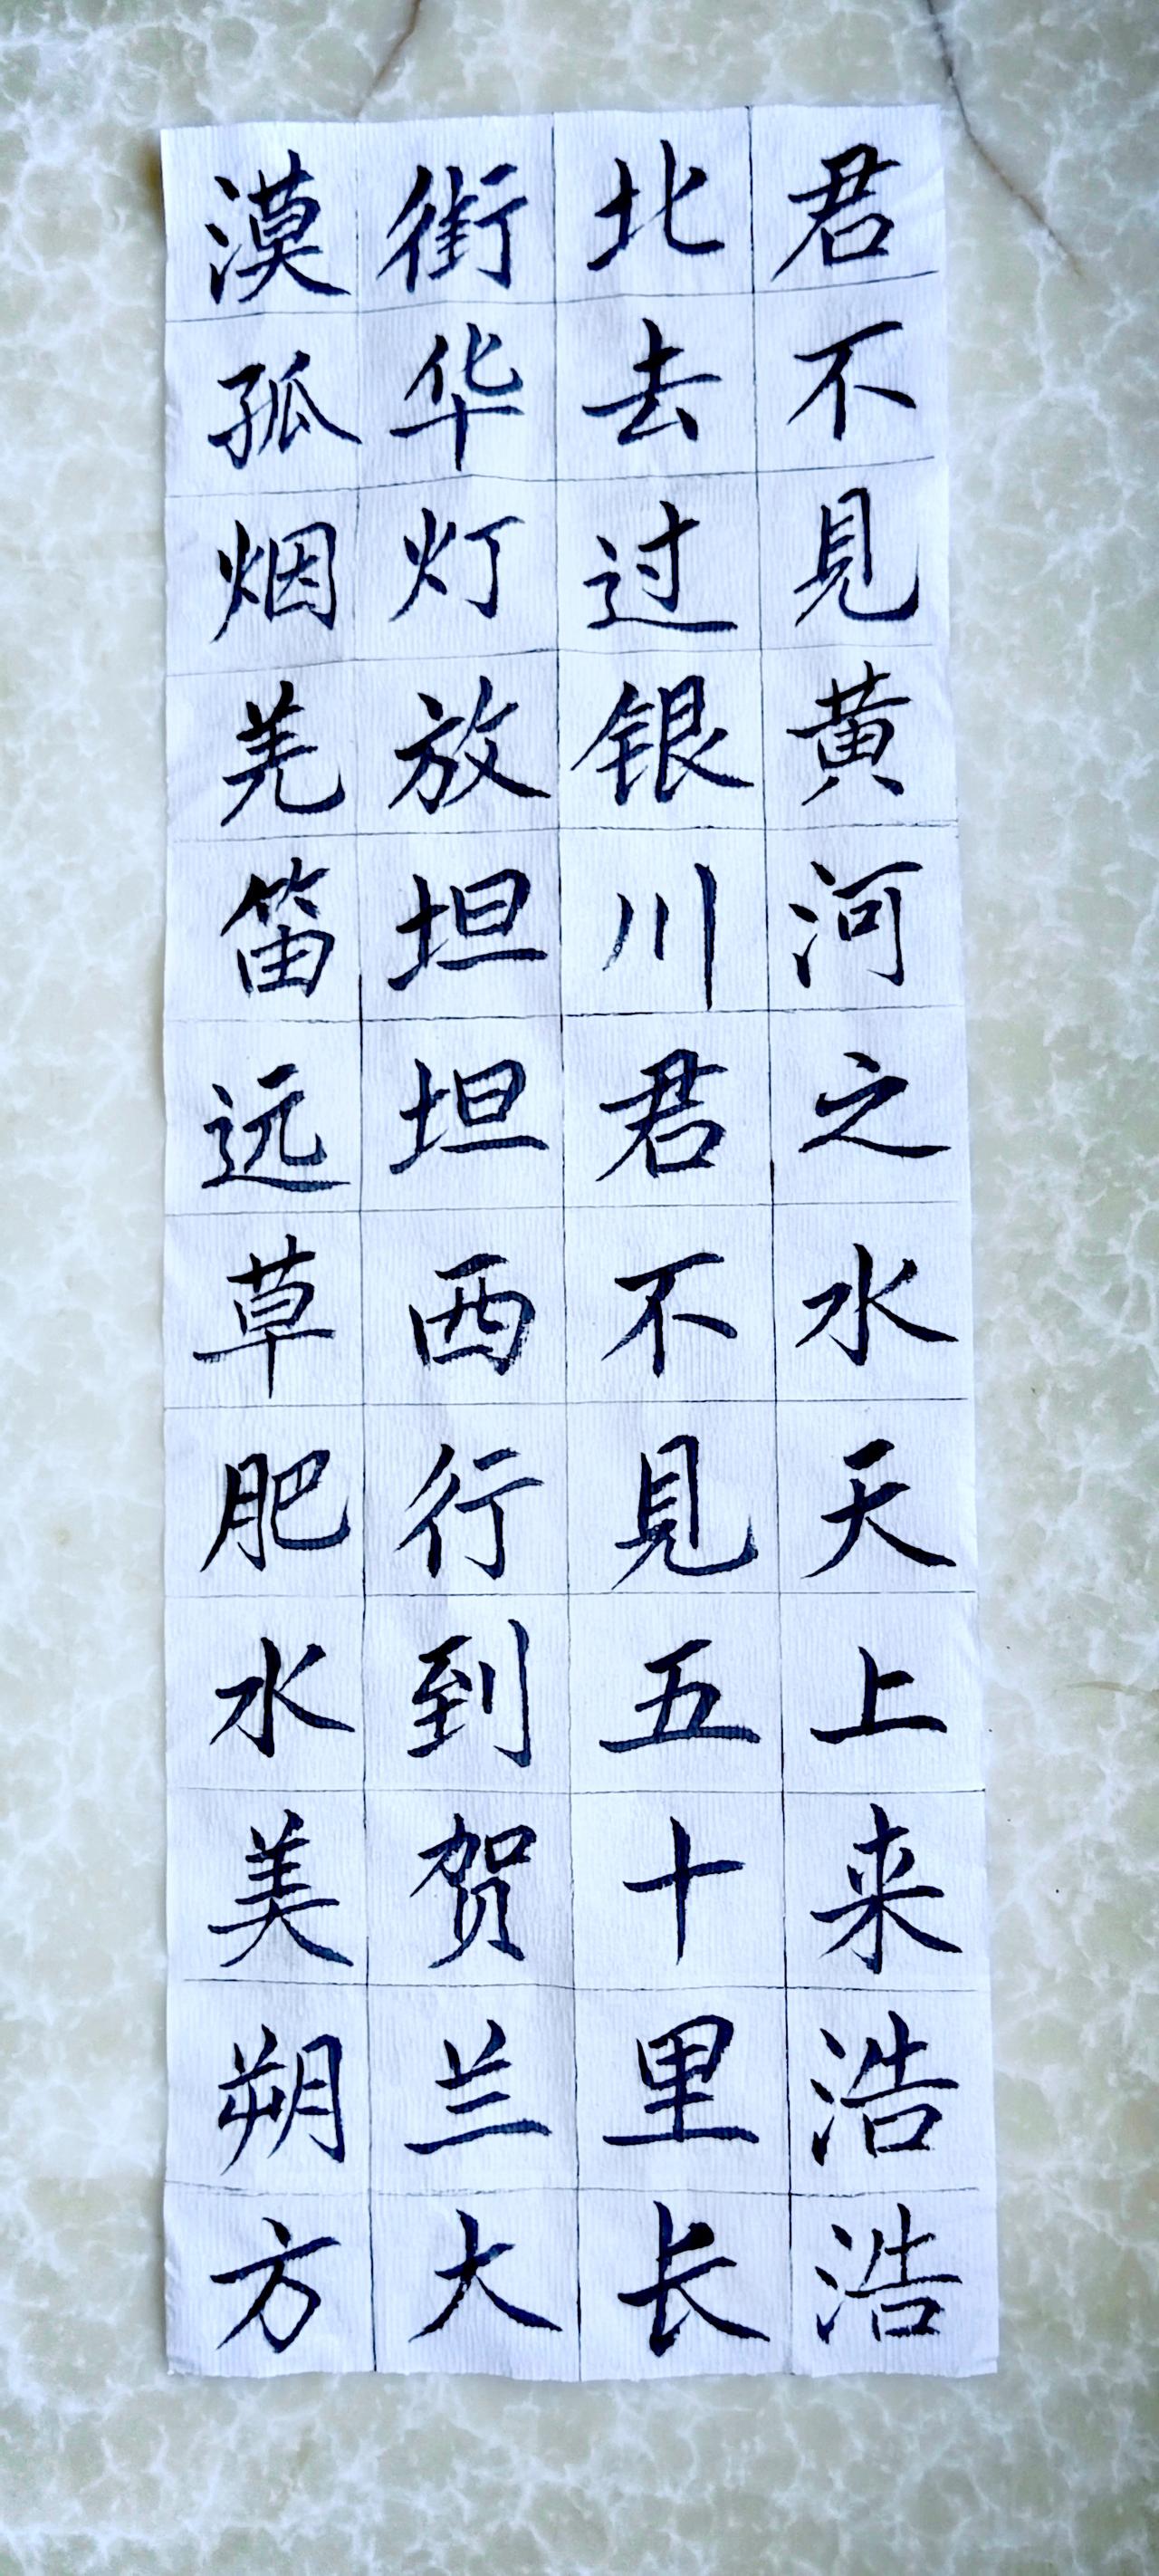 君不見黄河之水天上来浩浩
北去过银川君不見五十里长
街华灯放坦坦西行到贺兰大
漠孤烟羌笛远草肥水美朔方